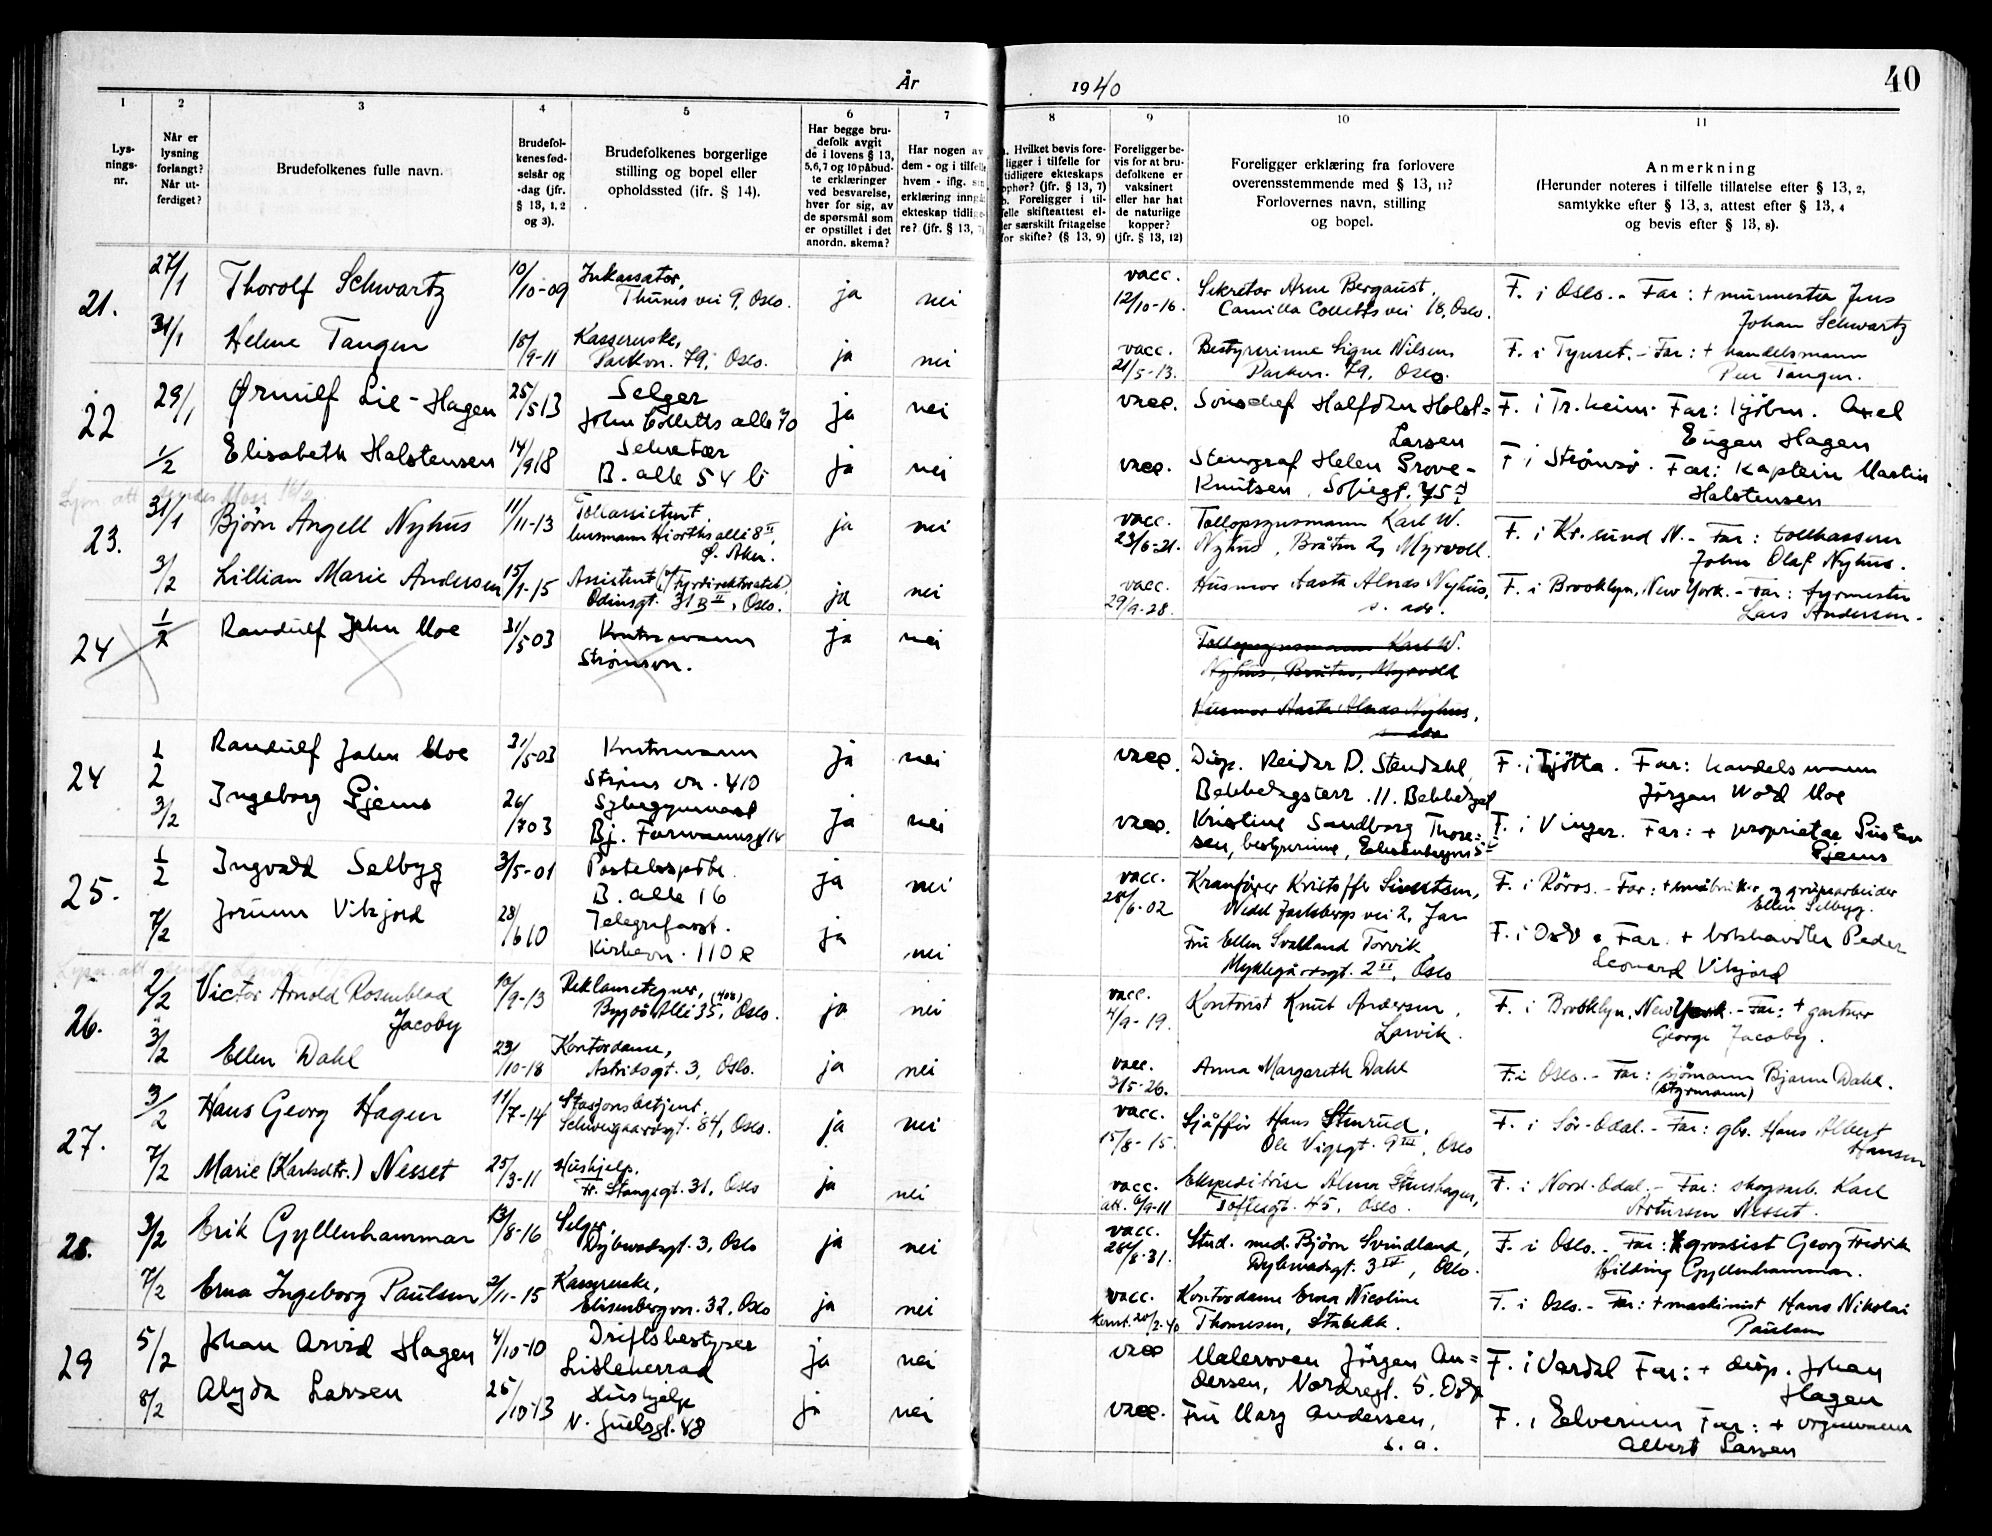 År 1940
40
1
2
3
4
5
6
7
8
9
10
11
Lys-
nings-
nr.
Når er
lysning
forlangt?
Når ut-
ferdiget?
Brudefolkenes fulle navn.
Brudefol-
kenes fød-
selsår og
-dag (jfr.
§ 13, 1, 2
og 3).
Brudefolkenes borgerlige
stilling og bopel eller
opholdssted (ifr. § 14).
Har begge bru-
defolk avgit
de i lovens § 13,
5,6,7 og 10 påbud-
te erklæringer
ved besvarelse,
hver for sig, av
de spørsmål som
er opstillet i det
anordn. skema?
Har nogen av
dem - og i tilfelle
hvem - iflg.
erklæring inngå
ekteskap tidlige-
re? (jfr. § 13, 7)
. Hvilket bevis fore-
ligger i tilfelle for
tidligere ekteskaps
ophør? (jfr. § 13, 7)
b. Foreligger i til-
felle skifteattest el-
ler særskilt fritagelse
for skifte? (§ 13, 9)
Foreligger be-
vis for at bru-
defolkene er
vaksinert
eller har hat
de naturlige
kopper?
(jfr. § 13, 12)
Foreligger erklæring fra forlovere
overensstemmende med § 13, 11?
Forlovernes navn, stilling
og bopel.
Anmerkning
(Herunder noteres i tilfelle tillatelse efter § 13, 2,
samtykke efter § 13, 3, attest efter § 13, 4
og bevis efter § 13, 8).
21.
27/1 Thorolf Schwartz 10/10-09 Inkassator, ja nei vacc. Sekretær Arne Bergaust, F. i Oslo. - Far: + murmester Jens
Thunes vei 9, Oslo. 12/10-16. Camilla Colletts vei 18, Oslo. Johan Schwartz
31/1 Helene Tangen 18/9-11 Kassererske, ja nei vacc. Bestyrerinne Signe Nilsen F. i Tynset. - Far: + handelsmann
Parkvn. 79, Oslo. 21/5-13. Parkvn. 79, Oslo. Peer Tangen.
22
29/1 Ørnulf Lie-Hagen 25/513 Selger ja nei vacc. Halfdan Holst= F. i Tr.heim. Far: kjøbm. Axel
John Colletts alle 70 Larsen Eugen Hagen
1/2 Elisabeth Halstensen 14/918 Sekretær ja nei vacc. Stenograf Helen Prove- F i Strømsø. Far: Kaptein Martin
B. alle 54 b Knutsen, Sofiegt. 75 Halstensen
23.
31/1 Bjørn Angell Nyhus 11/11-13 Tollassistent ja nei vacc. Tollopsynsmann Karl W. F. i Kr.sund N. - Far: tollkasserer
Husmann Hiorths allé 8 II, 23/6-21. Nyhus, Bråten 2, Myrvoll. John Olaf Nyhus.
Ø. Aker.
3/2 Lillian Marie Andersen 15/1-15 Assistent (v/ Fyrdirektoratet) ja nei vacc. Husmor Aasta Alnæs Nyhus, F. i Brooklyn, New York. - Far: fyrmester
Odinsgt. 31 B II, Oslo. 29/9-28. s. adr. Lars Andersen.
24
1/2 Randulf John Moe 31/503 Kontormann ja nei Tollopsynsmann Karl W.
Strømsvn. Nyhus, Bråten, Myrvold
Husmor Aasta Alnæs Nyhus,
s adr
24
1/2 Randulf John Moe 31/503 Kontormann ja nei vacc. Disp. Reidar D. Stendahl, F. i Tjøtta. Far: handelsmann
Strøms vn. 410 Bekkelagsterr. 11. Bekkelaget Jørgen Wold Moe
3/2 Ingeborg Gjems 26/703 Sykegymnast ja nei vacc. Kristine Sandborg Thore= F. i Vinger. Far: + proprietær Gustav
Bj. Farmannsgt 14 sen, bestyrerinne, Eckersbergsvn 5 Gjems
25.
1/2 Ingvald Selbyg 3/5-01 ja nei vacc. Kranfører Kristoffer Sivertsen, F. i Röros. - Far: + småbruker og gruvearbeider
B. alle 16 28/6-02 Wedel Jarlsbergs vei 2, Jar Ellen Selbyg.
7/2 Jorunn Vikjord 28/610 Telegrafasst. ja nei Fru Ellen Svalland Torvik F. i Oslo. Far. + bokhandler Peder
Kirkevn. 110 e Myklegårdsgt. 2 II, Oslo Leonard Vikjord
26.
2/2 Victor Arnold Rosenblad 10/9-13 Reklametegner, ja nei vacc. Kontorist Knut Andersen, F. i Brooklyn, New York. - Far: + gartner
Jacoby Bygdø Allé 35, (408) Oslo. 4/9-19. Larvik. George Jacoby.
3/2 Ellen Dahl 23/10-18 Kontordame, ja nei vacc. Anna Margareth Dahl F. i Oslo. - Far: sjømann Bjarne Dahl.
Astridsgt. 3, Oslo. 3/5-26. (styrmann)
27.
3/2 Hans Georg Hagen 11/7-14 Stasjonsbetjent, ja nei vacc. Sjåffør Hans Stenrud, F. i Sör-Odal. - Far: gbr. Hans Albert
Schweigaardsgt. 84, Oslo. 15/8-15. Ole Vigsgt. 9 III, Oslo Hansen
7/2 Marie (Karlsdtr.) Nesset 25/3-11 Hushjelp. ja nei vacc. Ekspeditrise Alma Stenshagen, F. i Nord-Odal. - Far: skogsarb. Karl
Fr. Stangsgt. 31, Oslo att. 6/9-11 Toftesgt. 45, Oslo. Artursen Nesset.
28.
3/2 Erik Gyllenhammar 13/8-16 Selger, ja nei vacc. Stud. med. Björn Svindland, F. i Oslo. - Far: grossist Georg Fredrik
Dybwadsgt. 3, Oslo 28/8-31. Dybwadsgt. 3 IV, Oslo. Hilding Gyllenhammar.
7/2 Erna Ingeborg Paulsen 2/11-15 Kassererske, ja nei vacc. Kontordame Erna Nicoline F. i Oslo. - Far: + maskinist Hans Nikolai
Elisenbergvn. 32, Oslo 20/2-40 Thomesen, Stabekk. Paulsen
29
5/2 Johan Arvid Hagen 4/10-10 Driftsbestyrer ja nei vacc Malersven Jörgen An= F. i Vardal Far: + disp. Johan
Lislelerrad dersen, Nordregt. 5. Oslo Hagen
8/2 Alyda Larsen 25/10-13 Hushjelp ja nei vacc. Fru Marg Andersen, F. i Elverum Far: + vognmann
N. Juelsgt. 48 s. a. Albert Larsen